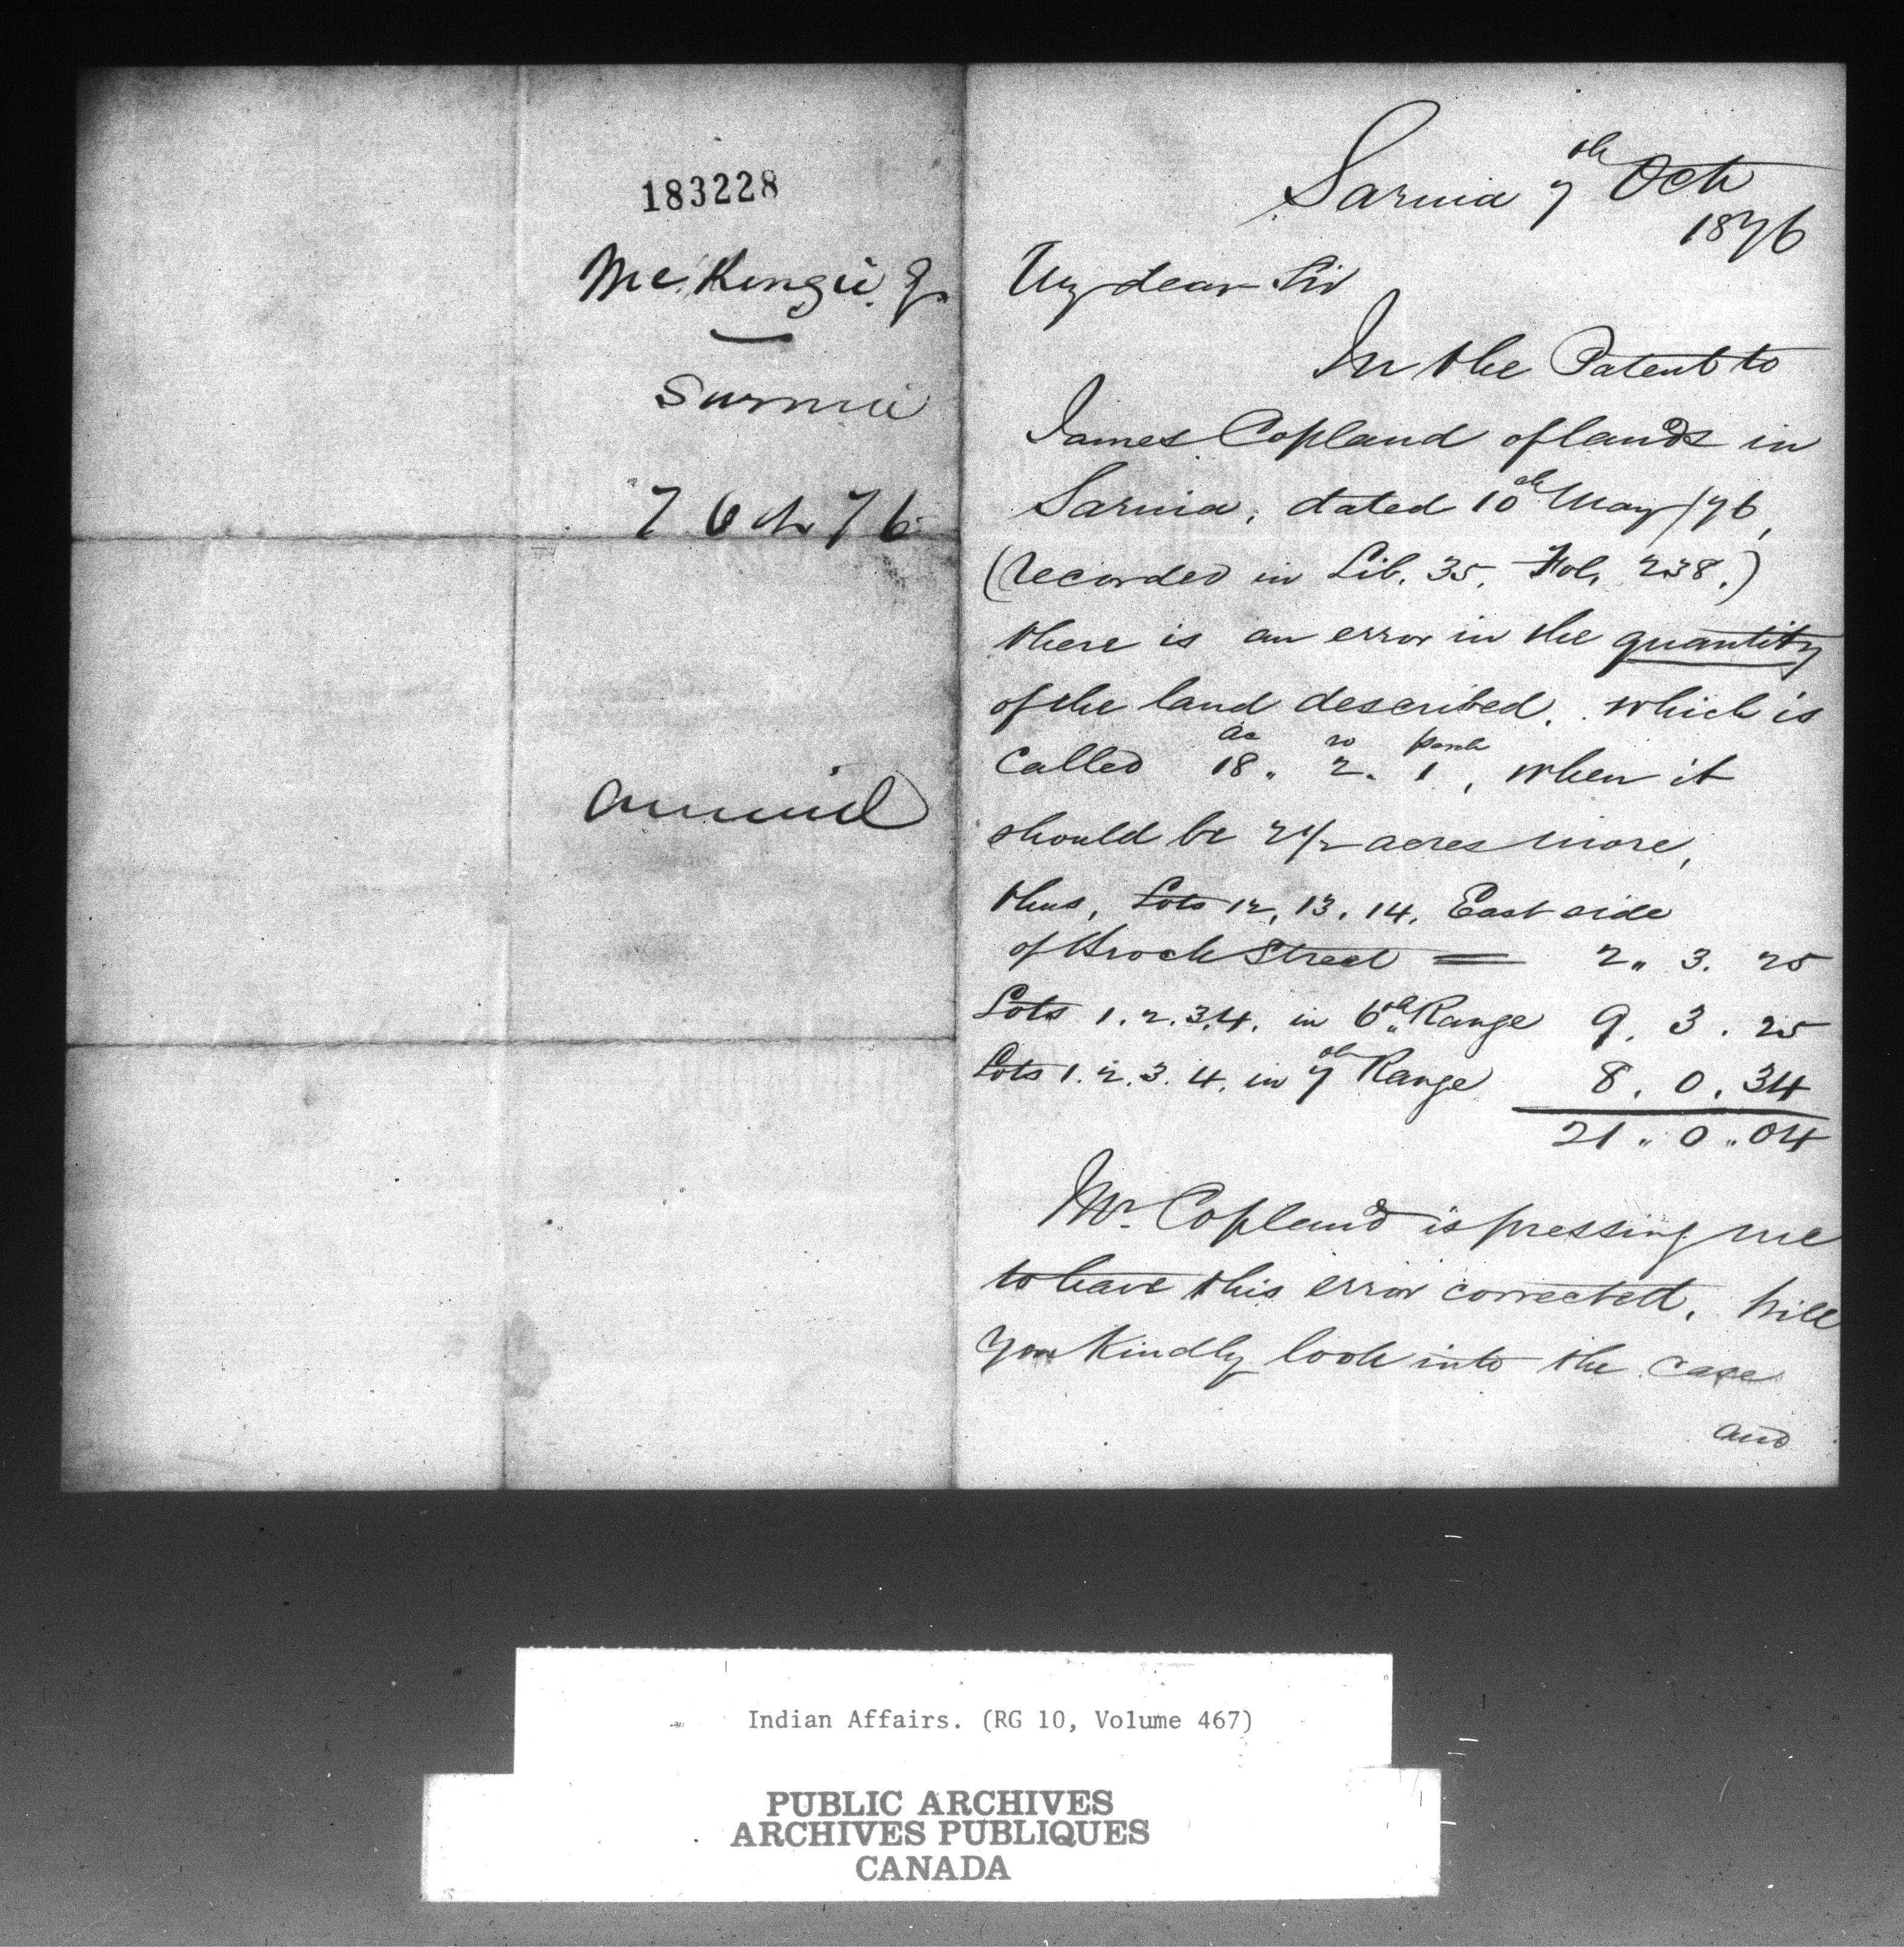 183228
McKenzie G.
Sarnia
7 Oct 76
Sarnia 7th Oct
1876
My dear Sir
In the Patent to
James Copland of lands in
Sarnia, dated 10th May /76,
(recorded in Lib. 35, Fol. 238.)
there is an error in the quantity
of the land described. which is
Called 18 ac. 2 ro. 1 perch, when it
should be 2 1/2 acres more,
thus, Lots 12, 13, 14, East side
of Brock Street = 2 " 3. 25
Lots 1. 2. 3. 4. in 6th Range 9. 3. 25
Lots 1. 2. 3. 4. in 7th Range 8. 0. 34
21 " 0 " 04
Mr. Copland is pressing me
to have this error corrected. Will
you Kindly look into the case
and
Indian Affairs. (RG 10, Volume 467)
PUBLIC ARCHIVES
ARCHIVES PUBLIQUES
CANADA